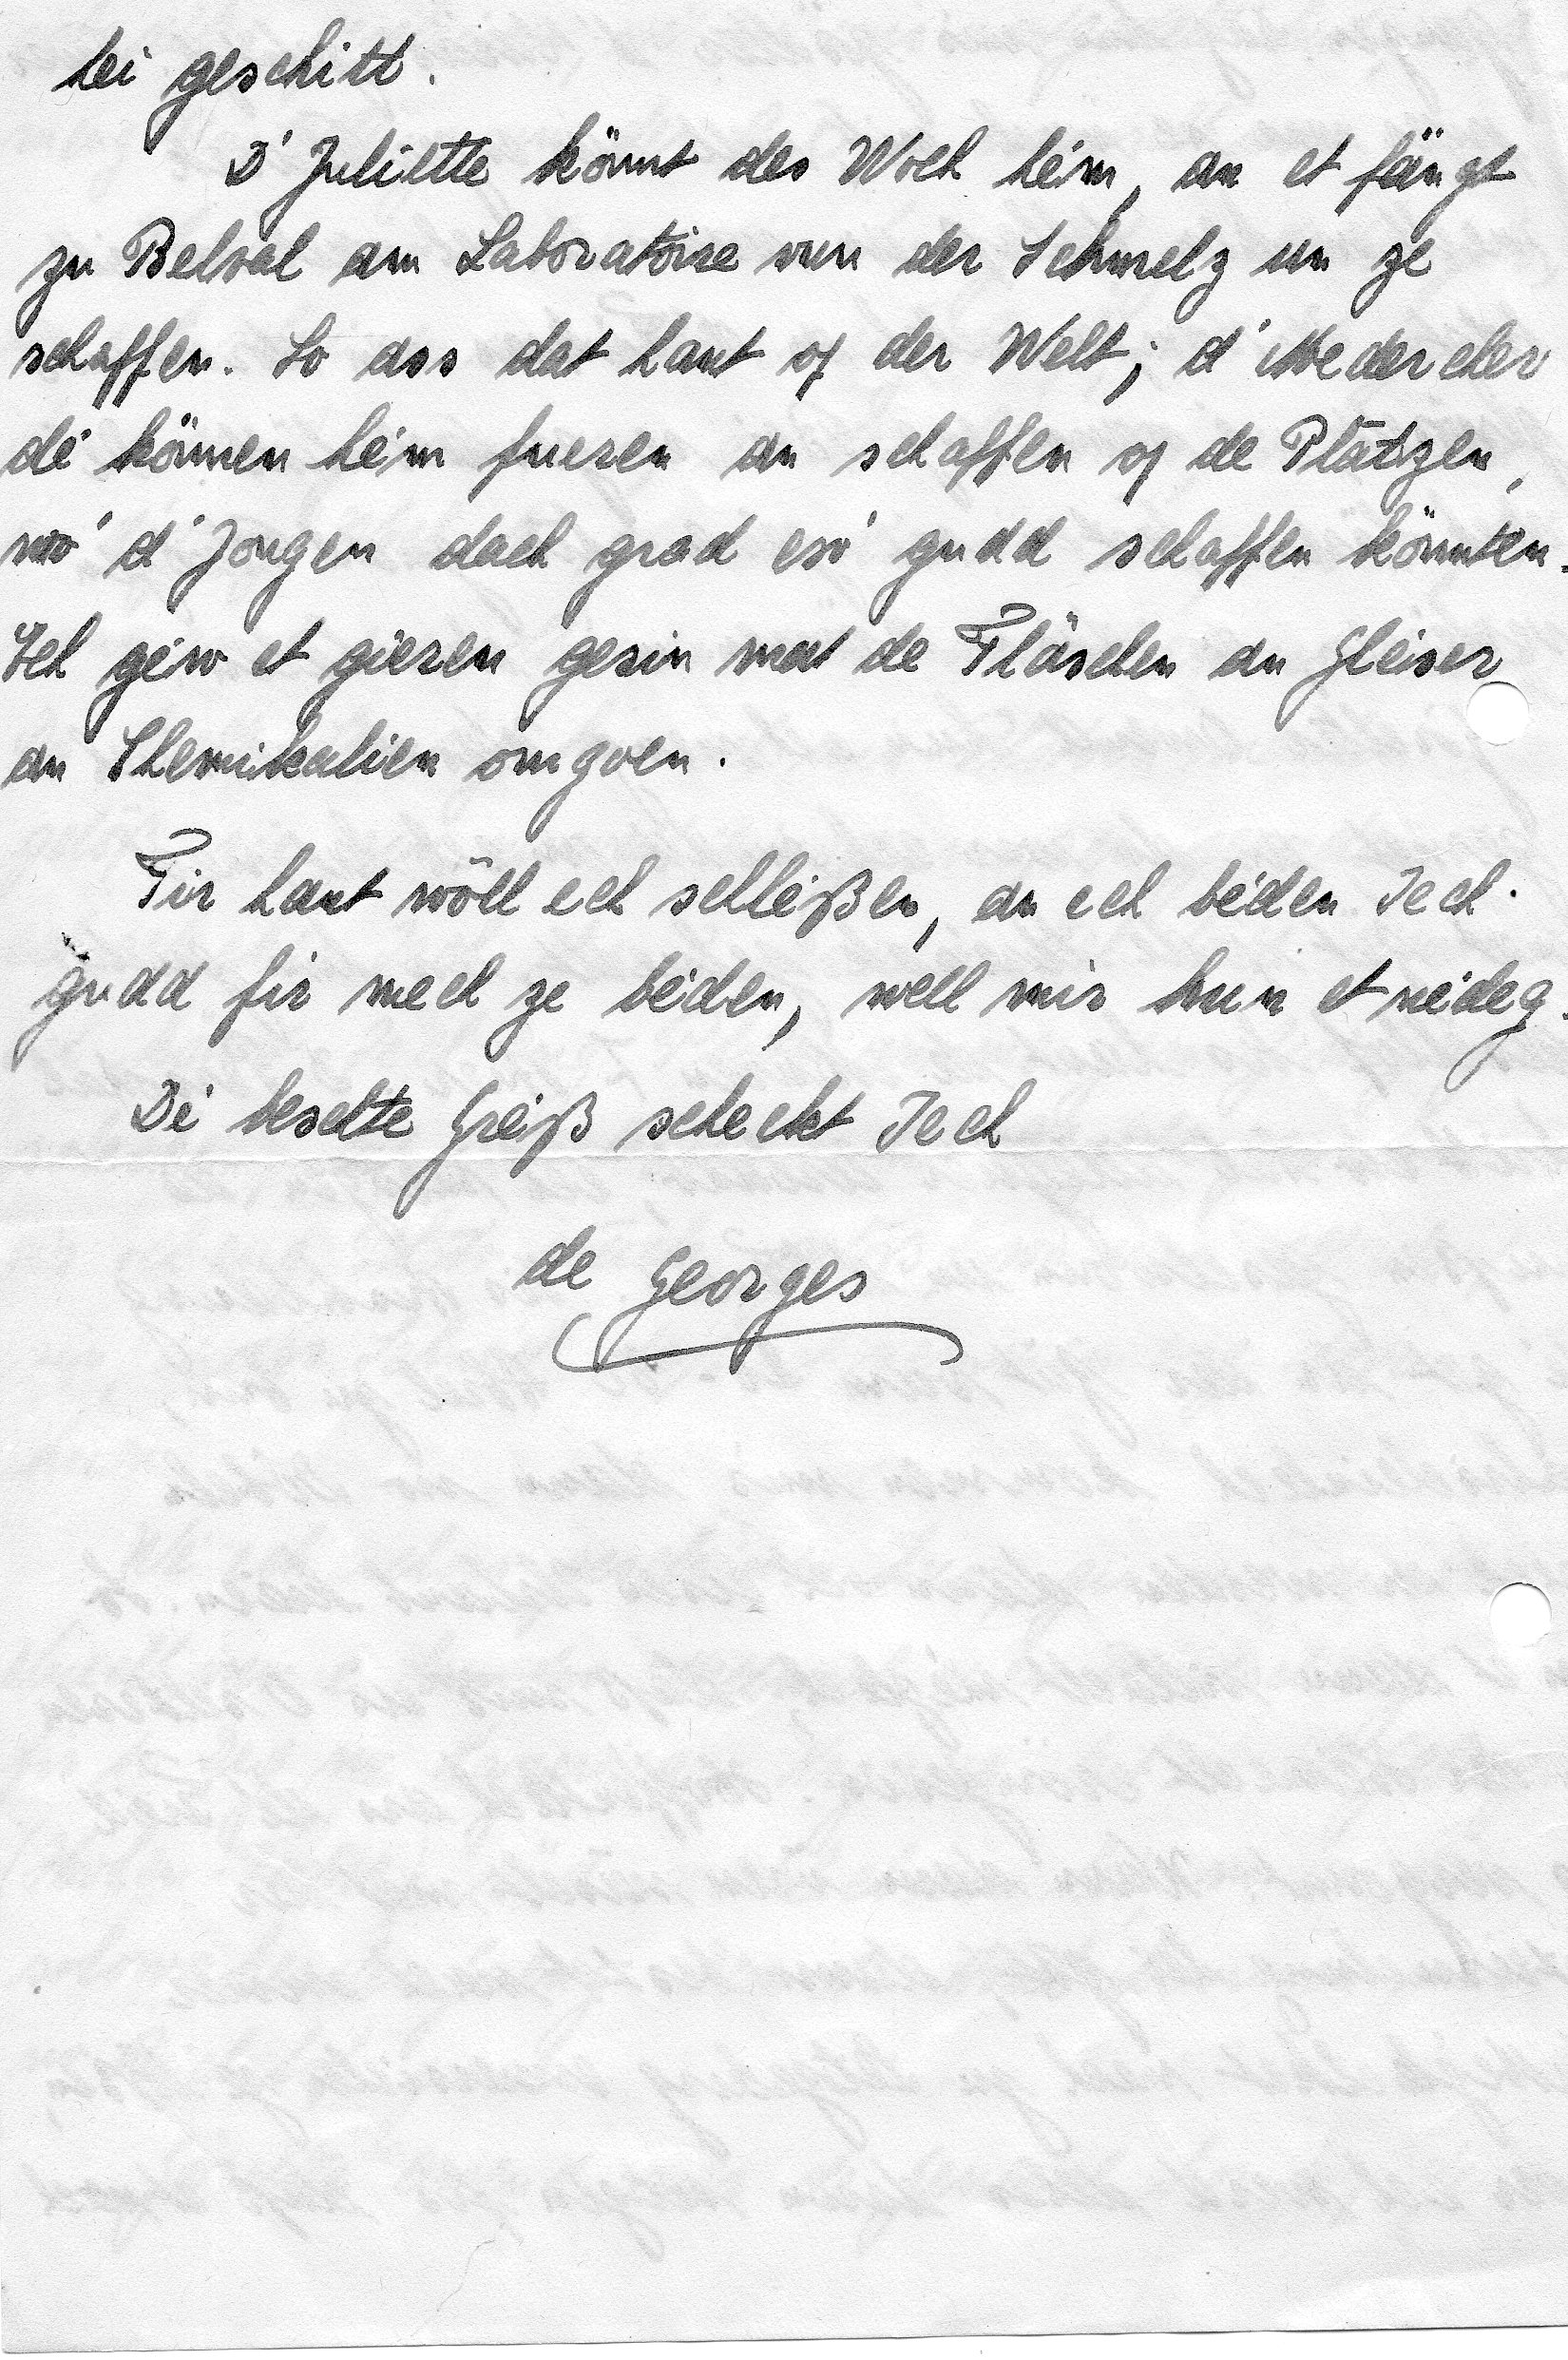 hei geschitt.
D'Juliette könnt des Woch héim, an et fängt
zu Belval am Laboratoire vun der Schmelz un ze
schaffen. So ass dat haut op der Welt; d'Medercher
dé können héim fueren an schaffen op de Plätzen,
wo' d'Jongen dach grad eso' gudd schaffen könnten.
Ech géw et gieren gesin mat de Fläschen an Gleiser
an Chemikalien omgoen.
Fir haut wöll ech schléißen, an ech béden Iech
gudd fir mech ze béden, well mir hun et nédeg.
Dé beschte Gréiß scheckt Iech
de Georges